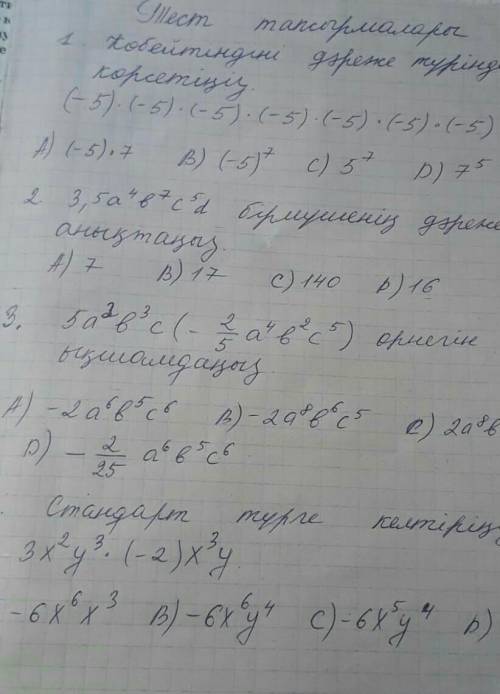 Тест тапсырмалары
1. Көбейтіндіні дәреже түрінд
көрсетіңіз.
(-5)·(-5)·(-5)·(-5)·(-5)·(-5)·(-5)
A) (-5)·7 B) (-5)⁷ C) 5⁷ D) 7⁵
2. 3,5a⁴b⁷c⁵d бірмүшенің дәреже
анықтаңыз.
A) 7 B) 17 C) 140 D) 16
3. 5a²b³c (-2/5 a⁴b²c⁵) өрнегін
ықшамдаңыз
A) -2a⁶b⁵c⁶ B) -2a⁸b⁶c⁵ C) 2a⁸b
D) -2/25 a⁶b⁵c⁶
Стандарт түрге келтіріңі
3x²y³·(-2)x³y
-6x⁶x³ B) -6x⁶y⁴ C) -6x⁵y⁴ D)